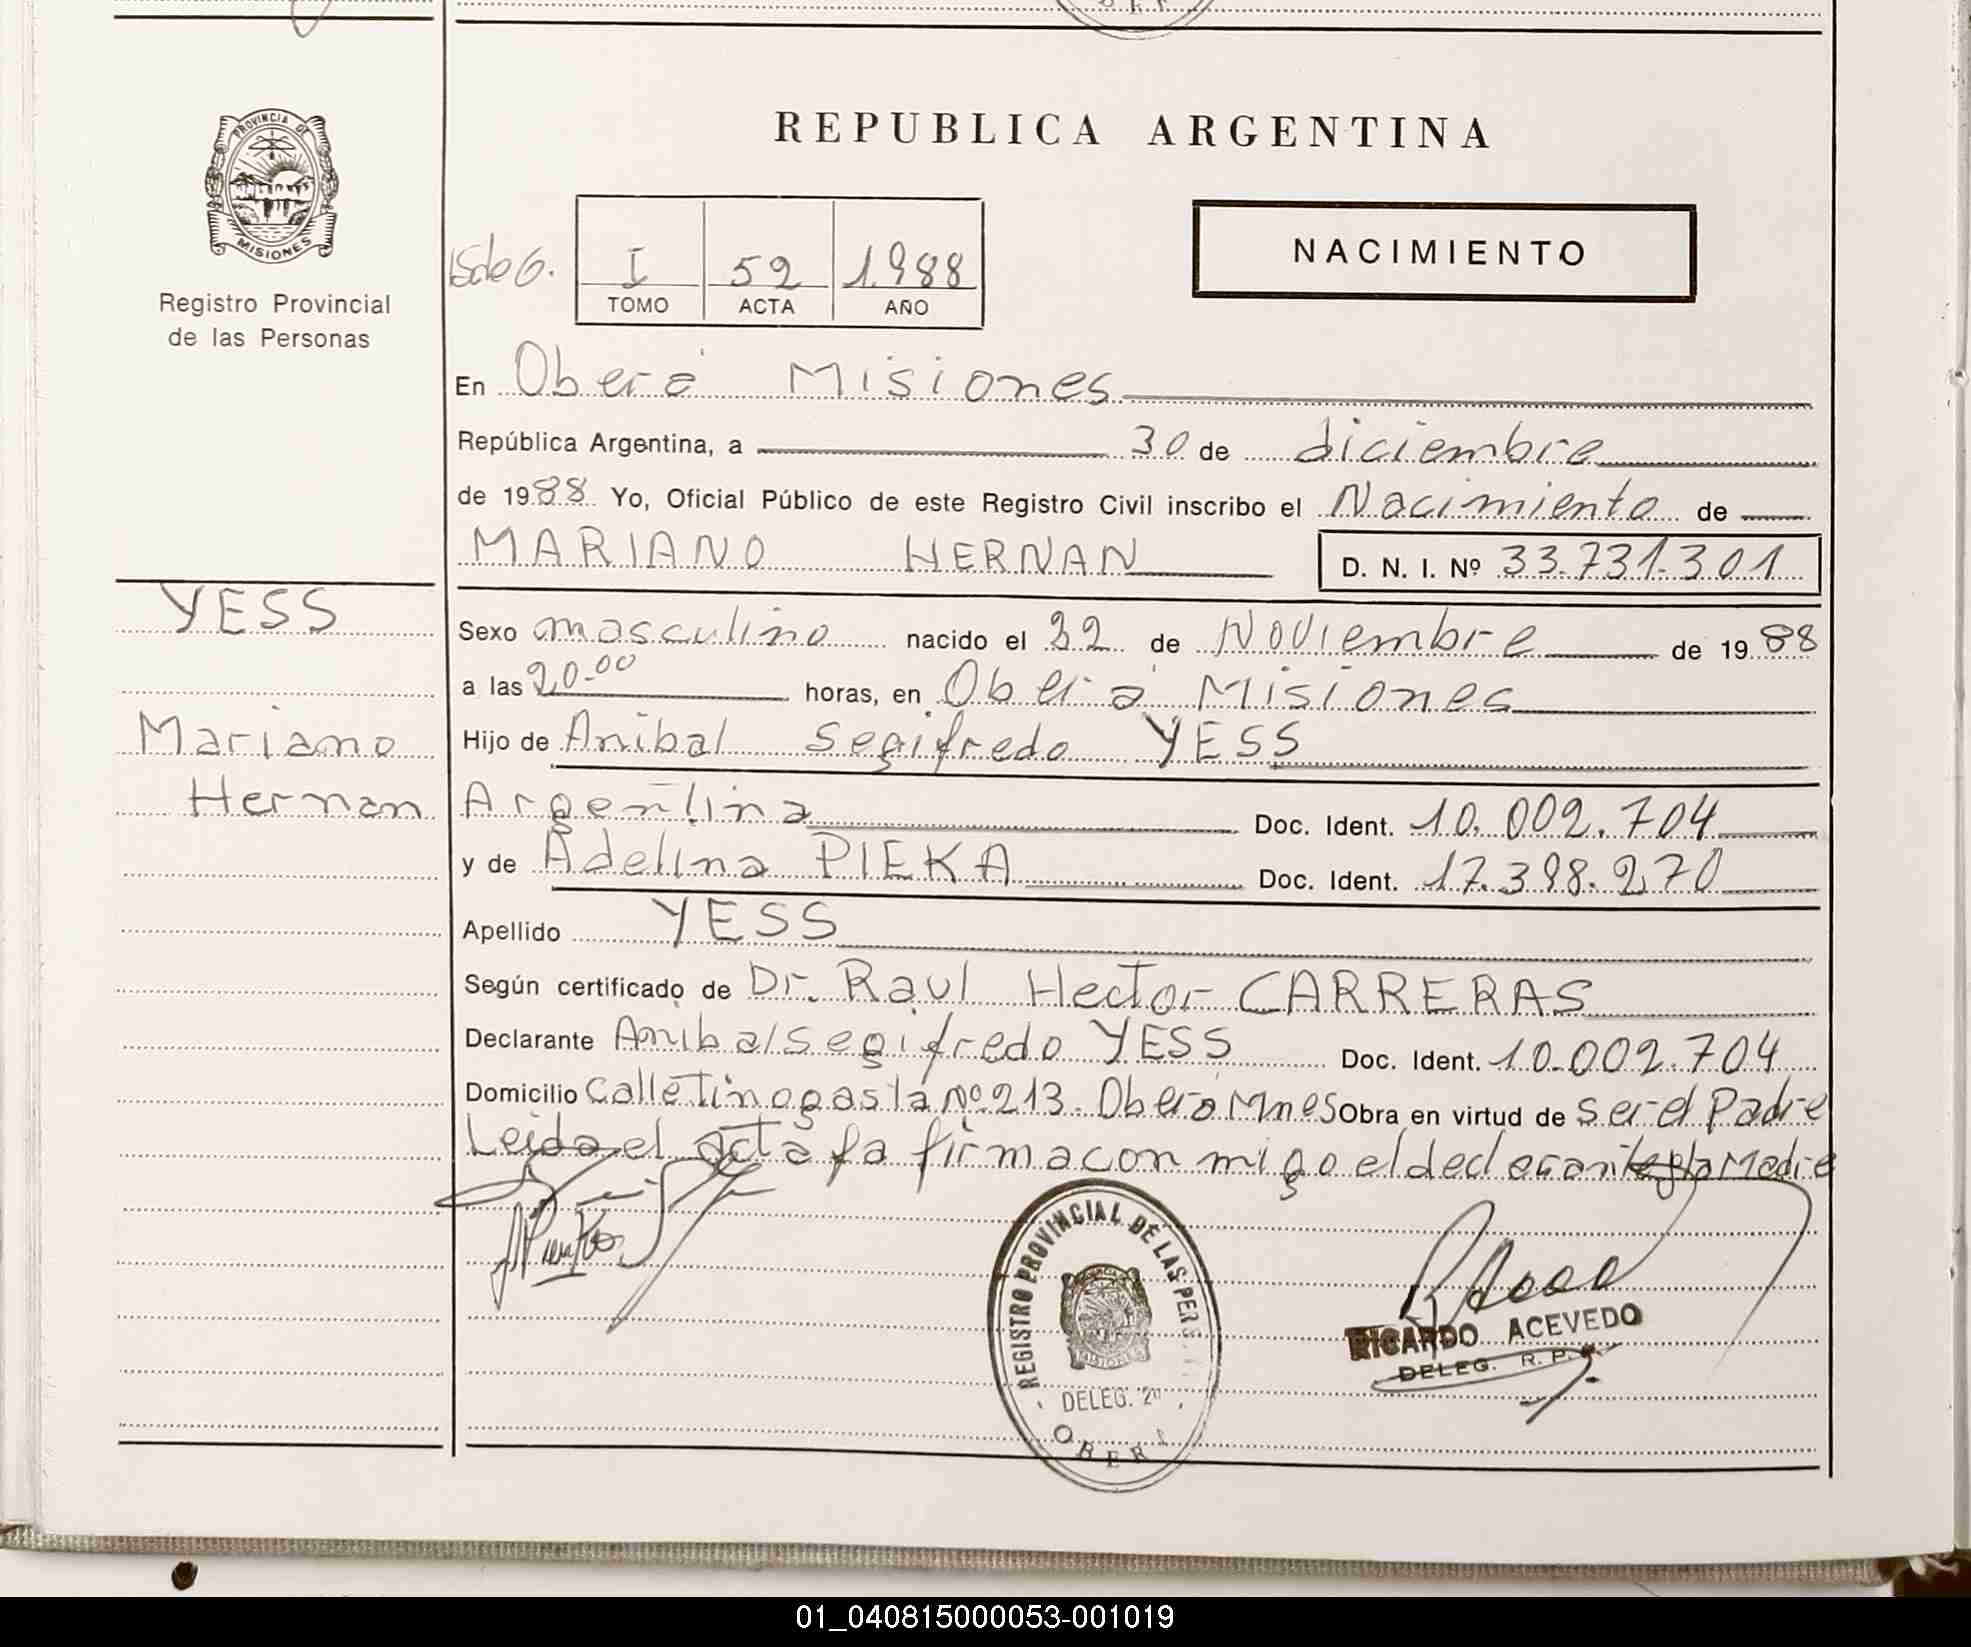 PROVINCIA DE
MISIONES
Registro Provincial
de las Personas
REPUBLICA ARGENTINA
I 52 1.988
TOMO ACTA AÑO
NACIMIENTO
En Oberá Misiones
República Argentina, a 30 de diciembre
de 1988 Yo, Oficial Público de este Registro Civil inscribo el Nacimiento de
MARIANO HERNAN D. N. I. Nº 33.731.301
YESS
Mariano
Hernan
Sexo masculino nacido el 22 de Noviembre de 1988
a las 20.00 horas, en Oberá Misiones
Hijo de Anibal Segifredo YESS
Argentina Doc. Ident. 10.002.704
y de Adelina PIEKA Doc. Ident. 17.398.270
Apellido YESS
Según certificado de Dr. Raul Hector CARRERAS
Declarante Anibal Segifredo YESS Doc. Ident. 10.002.704
Domicilio Calle Tinogasta Nº 213. Oberá Mnes Obra en virtud de ser el Padre
Leida el acta la firma con migo el declarante y la Madre
REGISTRO PROVINCIAL DE LAS PERS
MISIONES
DELEG.
OBER
RICARDO ACEVEDO
DELEG. R. P.
01_040815000053-001019